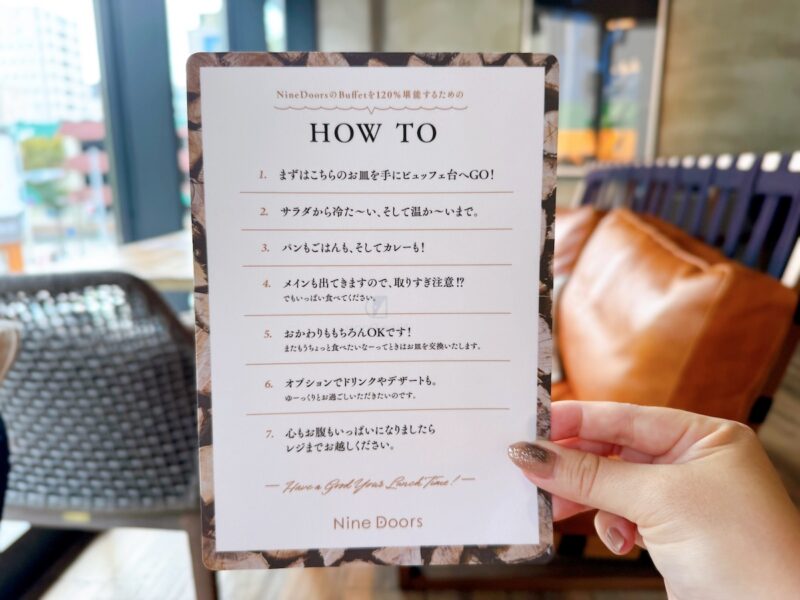 NineDoorsのBuffetを120%堪能するための
HOW TO
1. まずはこちらのお皿を手にビュッフェ台へGO!
2. サラダから冷た〜い、そして温か〜いまで。
3. パンもごはんも、そしてカレーも!
4. メインも出てきますので、取りすぎ注意!?
でもいっぱい食べてください。
5. おかわりももちろんOKです!
またもうちょっと食べたいなーってときはお皿を交換いたします。
6. オプションでドリンクやデザートも。
ゆーっくりとお過ごしいただきたいのです。
7. 心もお腹もいっぱいになりましたら
レジまでお越しください。
Have a Good Your Lunch Time!
Nine Doors